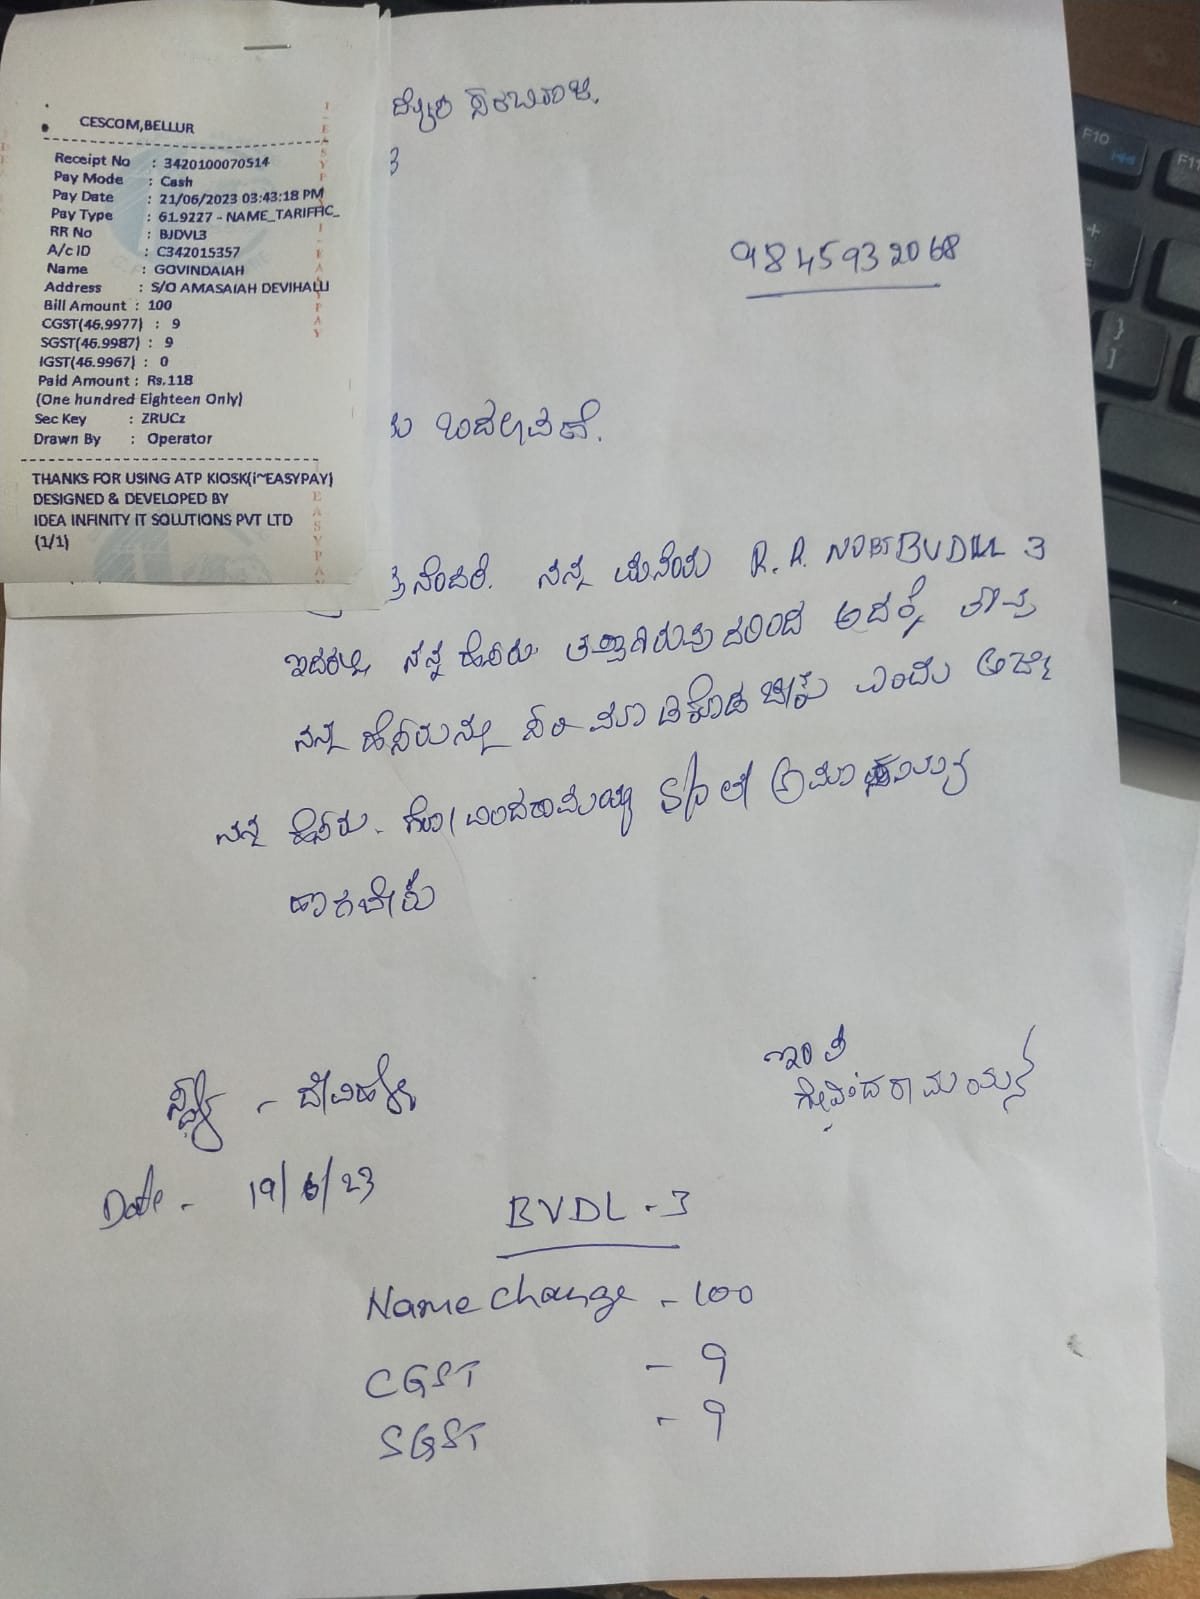 CESCOM,BELLUR
Receipt No : 3420100070514
Pay Mode : Cash
Pay Date : 21/06/2023 03:43:18 PM
Pay Type : 61.9227 - NAME_TARIFFIC_
RR No : BJDVL3
A/c ID : C342015357
Name : GOVINDAIAH
Address : S/O AMASAIAH DEVIHALLI
Bill Amount : 100
CGST(46.9977) : 9
SGST(46.9987) : 9
IGST(46.9967) : 0
Paid Amount : Rs.118
(One hundred Eighteen Only)
Sec Key : ZRUCz
Drawn By : Operator
THANKS FOR USING ATP KIOSK(i~EASYPAY)
DESIGNED & DEVELOPED BY
IDEA INFINITY IT SOLUTIONS PVT LTD
(1/1)
3
9845932068
ನನ್ನ ಮನೆಯ R.R. NO BVDL 3
ಇದರಲ್ಲಿ ನನ್ನ ಹೆಸರು ತಪ್ಪಾಗಿರುವುದರಿಂದ ಅದಕ್ಕೆ ತಾವು
ನನ್ನ ಹೆಸರನ್ನು ಸರಿ ಮಾಡಿಕೊಡಬೇಕು ಎಂದು ಅರ್ಜಿ
ನನ್ನ ಹೆಸರು. ಗೋವಿಂದರಾಮಯ್ಯ S/o
ಹಾಕಬೇಕು
ಇಂತಿ
ದೇವಿಹಳ್ಳಿ
Date - 19/6/23
BVDL - 3
Name change - 100
CGST - 9
SGST - 9